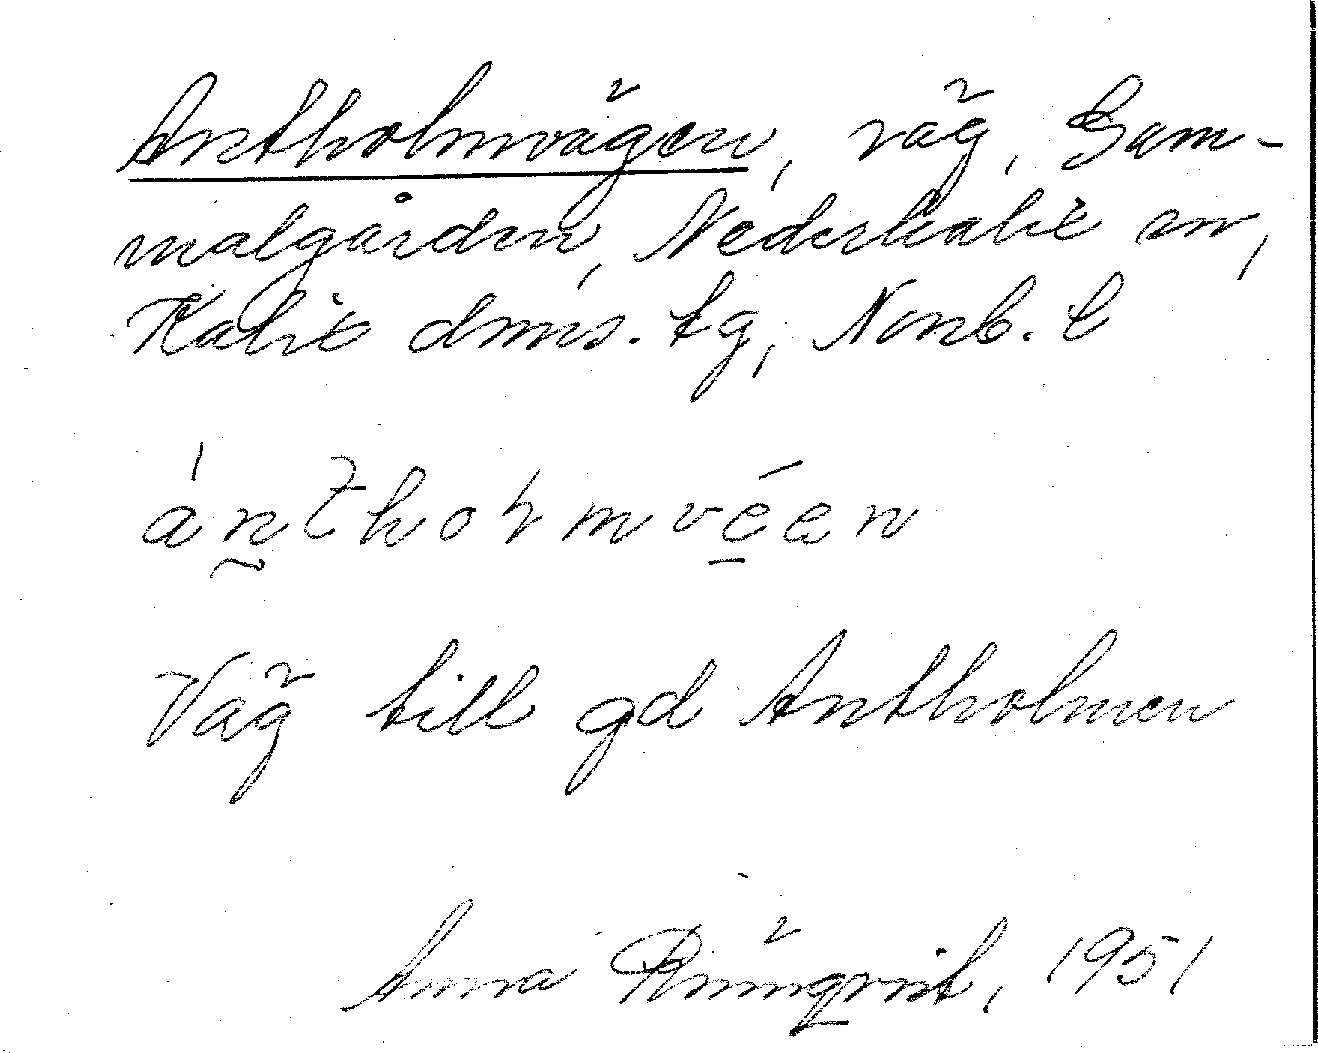 Antholmvägen, väg, Gam-
malgården, Nederkalix sn,
Kalix dms. tg, Norrb. l
Väg till gd Antholmen
Anna 1951